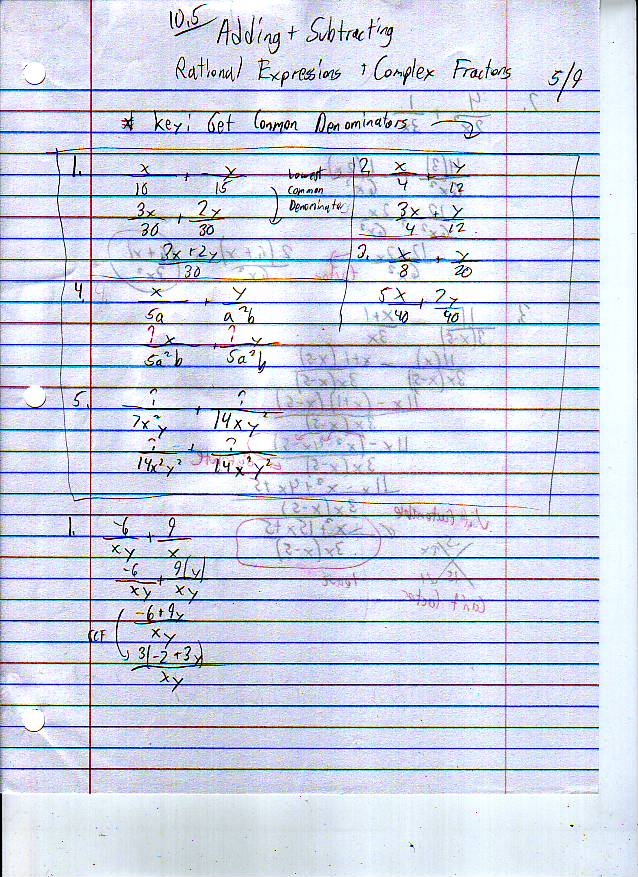 10.5 Adding + Subtracting
Rational Expressions + Complex Fractons 5/9
* Key: Get Common Denominators
1. x/10 + y/15 Lowest Common Denominator
3x/30 + 2y/30
3x+2y/30
2. x/4 + y/12
3x/4 + y/12
3. x/8 + y/20
5x/40 + 2y/40
4. x/5a + y/a²b
? x/5a²b + ? y/5a²b
5. ?/7x²y + ?/14xy²
?/14x²y² + ?/14x²y²
1. -6/xy + 9/x
-6/xy + 9(y)/xy
-6+9y/xy
GCF 3(-2+3y)/xy